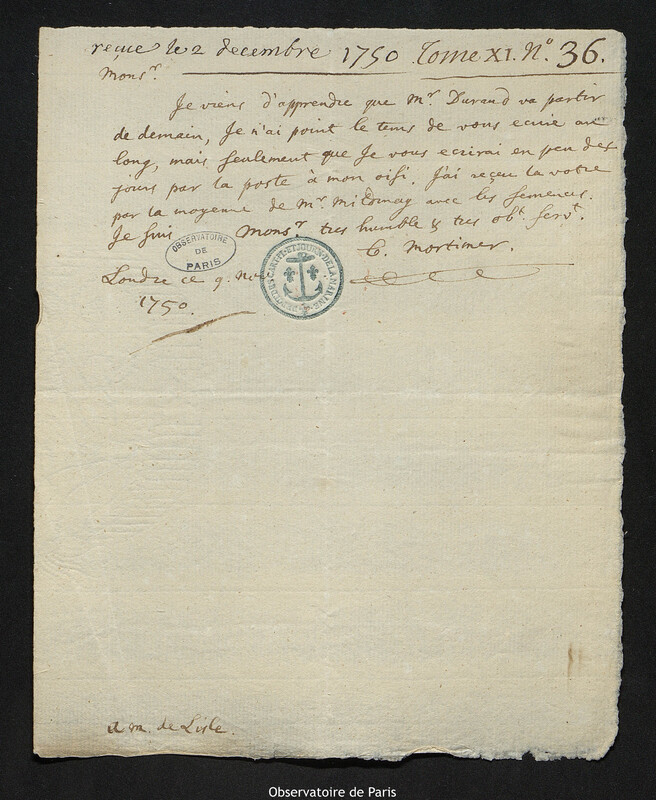 reçue le 2 decembre 1750 Tome XI. N.° 36.
Mons.r
Je viens d'apprendre que Mr. Durand va partir
de demain, Je n'ai point le tems de vous ecrire au
long, mais seulement que Je vous ecrirai en peu des
jours par la poste à mon oisi. J'ai reçeu la votre
par la moyenne de Mr. Mildmay avec les semences.
Je suis Mons.r tres humble & tres ob.t serv.t
C. Mortimer.
OBSERVATOIRE
DE
PARIS
DEPOT DES CARTES ET JOURN. DE LA MARINE
Londre ce 9. Nov.
1750.
a m. de Lisle.
Observatoire de Paris